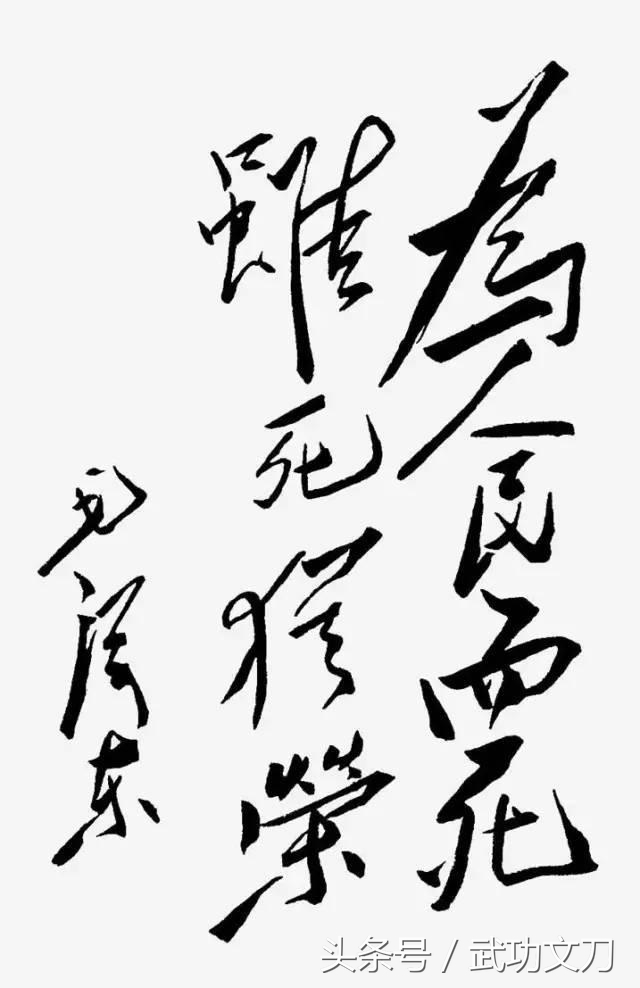 為人民而死
雖死猶榮
毛澤东
头条号 / 武功文刀